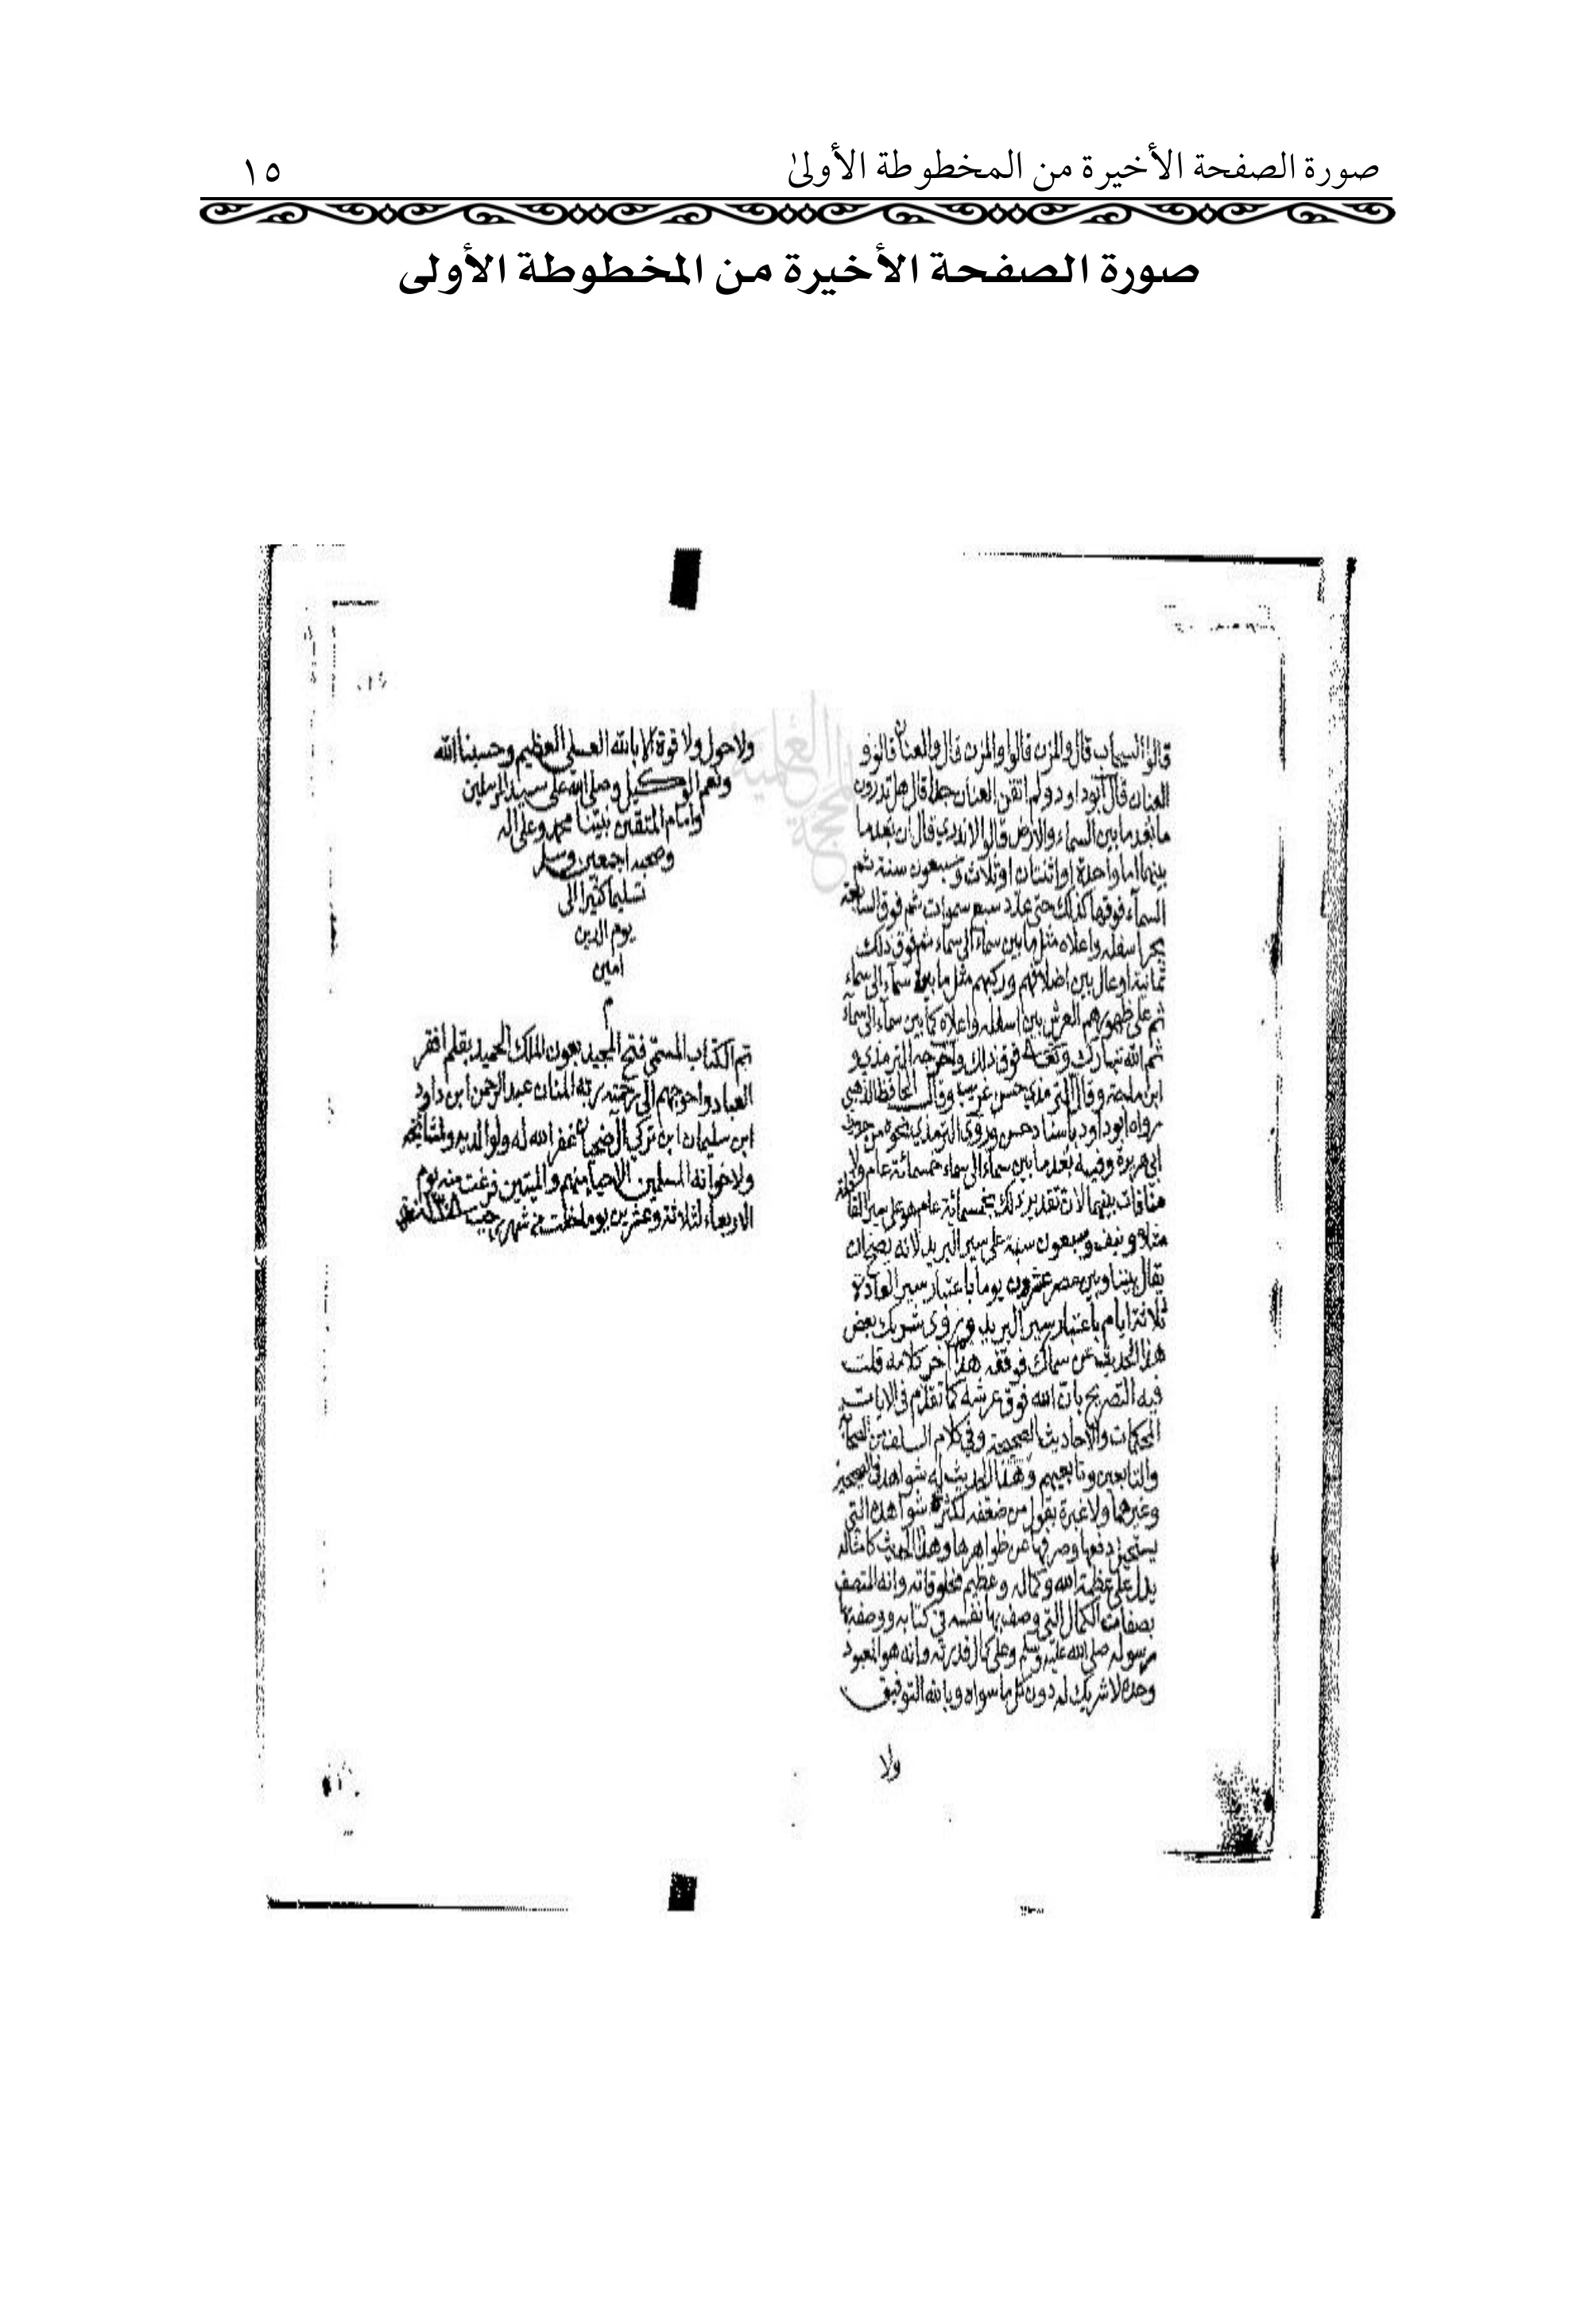 صورة الصفحة الأخيرة من المخطوطة الأولىٰ
١٥
صورة الصفحة الأخيرة من المخطوطة الأولى
قالوا السحاب قال والمزن قالوا والمزن قال والعنان قالوا و
العنان قال ابو داود ولم اتقن العنان جدا قال هل تدرون
ما بعد ما بين السماء والارض قالوا لا ندري قال ان بعد ما
بينهما اما واحدة او اثنتان او ثلاث وسبعون سنة ثم
السماء فوقها كذلك حتى عدد سبع سموات ثم فوق السابعة
بحر اسفله واعلاه مثل ما بين سماء الى سماء ثم فوق ذلك
ثمانية اوعال بين اضلافهم وركبهم مثل ما بين سماء الى سماء
ثم على ظهورهم العرش بين اسفله واعلاه كما بين سماء الى سماء
ثم الله تبارك وتعالى فوق ذلك واخرجه الترمذي و
ابن ماجه وقال الترمذي حسن غريب وقال الحافظ الذهبي
رواه ابو داود باسناد حسن وروى الترمذي نحوه من حديث
ابي هريرة وفيه بعد ما بين سماء الى سماء خمسمائة عام ولا
منافات بينهما لان تقدير ذلك بخمسمائة عام هو على سير القافلة
مثلا ونيف وسبعون سنة على سير البريد لانه يصح ان
يقال بيننا وبين مصر عشرون يوما باعتبار سير العادة
ثلاثة ايام باعتبار سير البريد وروى شريك بعض
هذا الحديث عن سماك فوقفه هذا آخر كلامه قلت
فيه التصريح بان الله فوق عرشه كما تقدم في الايات
المحكمات والاحاديث الصحيحة وفي كلام السلف من الصحابة
والتابعين وتابعيهم وهذا الحديث له شواهد في الصحيحين
وغيرهما ولا عبرة بقول من ضعفه لكثرة شواهده التي
يستحيل دفعها وصرفها عن ظواهرها وهذا الحديث كامثاله
يدل على عظمة الله وكماله وعظيم مخلوقاته وانه المتصف
بصفات الكمال التي وصف بها نفسه في كتابه ووصفه بها
رسوله صلى الله عليه وسلم وعلى كمال قدرته وانه هو المعبود
وحده لا شريك له دون كل ما سواه وبالله التوفيق
ولا
ولا حول ولا قوة الا بالله العلي العظيم وحسبنا الله
ونعم الوكيل وصلى الله على سيد المرسلين
وامام المتقين نبينا محمد وعلى اله
وصحبه اجمعين وسلم
تسليما كثيرا الى
يوم الدين
امين
م
تم الكتاب المسمى فتح المجيد بعون الملك الحميد بقلم افقر
العباد واحوجهم الى رحمة ربه المنان عبد الرحمن ابن داود
ابن سليمان ابن تركي آل غفر الله له ولوالديه ولمشائخه
ولاخوانه المسلمين الاحياء منهم والميتين فرغت منه يوم
الاربعاء لثلاثة وعشرين يوما خلت من شهر رجب